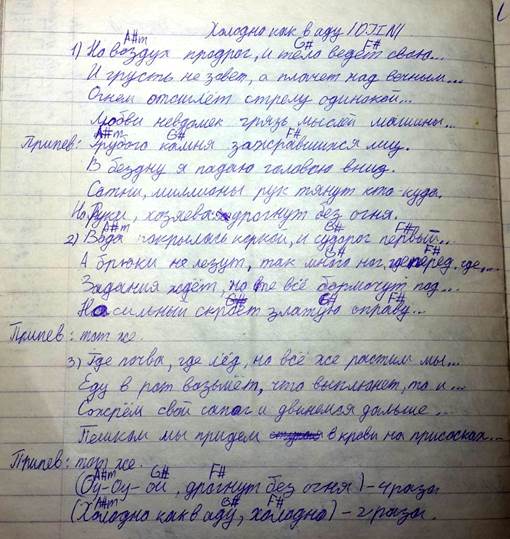 Холодно как в аду (OTINI
A#m G# F#
1) На воздух продрог, и тело ведёт свою...
И грусть не зовёт, а плачет над вечным...
Огнём отошлёт стрелу одинокой...
Любви невдомёк грязь мыслей машины...
A#m G# F#
Припев: Грубого камня зажравшихся лиц.
В бездну я падаю головою вниз.
Сотни, миллионы рук тянут кто-куда.
Но Руки, хозяева дрогнут без огня.
A#m G# F#
2) Вода покрылась коркой, и судорог первый...
G# F#
А брюки не лезут, так много ног, где перед, где,...
Задания ждёт, но те всё бормочут под...
G# G# F#
Насильный скребёт златую оправу...
Припев: тот же.
3) Где почва, где лёд, но всё же растим мы...
Еду в рот возьмёт, что выплюнет, то и...
Сожрём свой сапог и двинемся дальше...
Пешком мы придём в крови на присосках...
Припев: тот же.
A#m G# F#
(Оу-Оу-ой, дрогнут без огня) - 4 раза
A#m G# F#
(Холодно как в аду, холодно) - 2 раза.